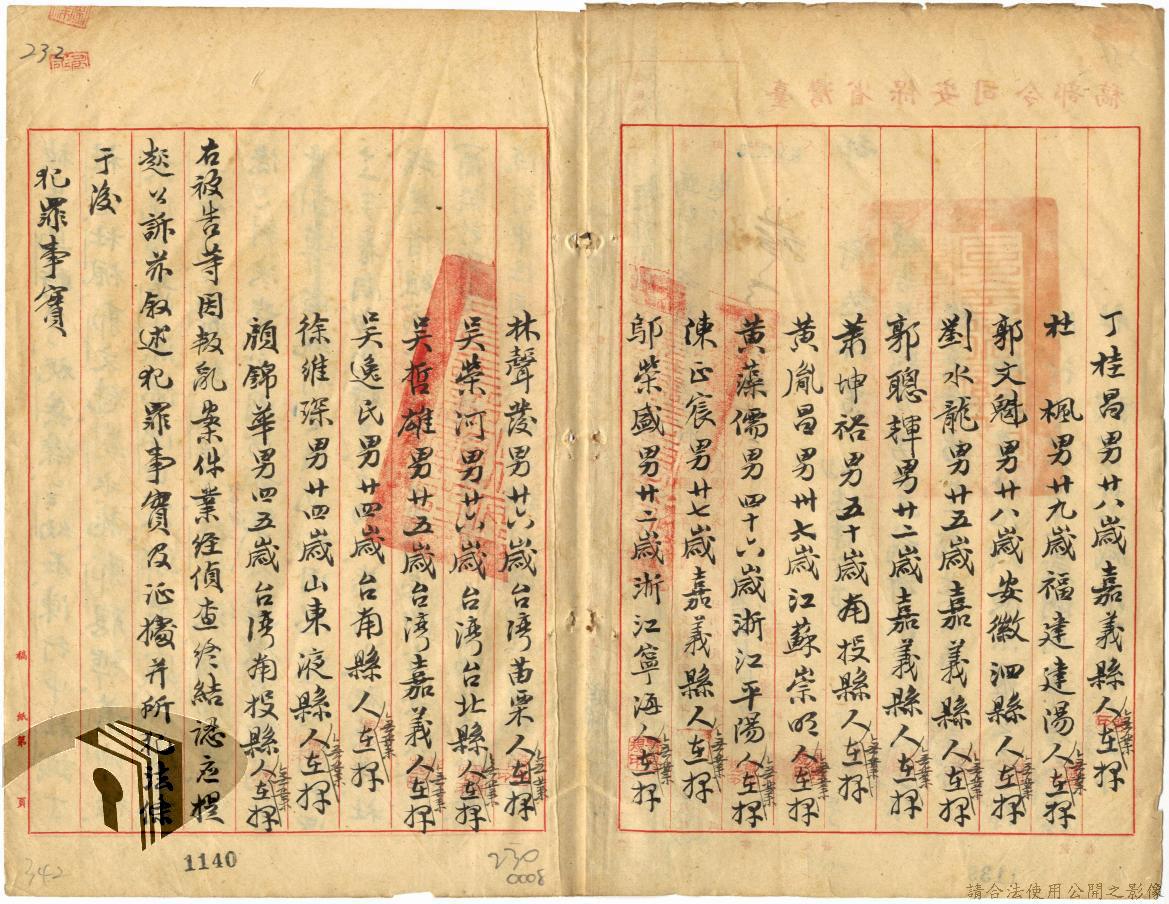 臺灣省保安司令部稿
丁桂昌男廿八歲嘉義縣人無業在押
杜楓男廿九歲福建建陽人無業在押
郭文魁男廿八歲安徽泗縣人無業在押
劉水龍男廿五歲嘉義縣人無業在押
郭聰輝男廿二歲嘉義縣人無業在押
蕭坤裕男五十歲南投縣人無業在押
黃胤昌男卅七歲江蘇崇明人無業在押
黃藻儒男四十六歲浙江平陽人無業在押
陳正宸男廿七歲嘉義縣人無業在押
鄔榮盛男廿二歲浙江寧海人無業在押
林聲發男廿六歲台湾苗栗人無業在押
吳榮河男廿六歲台湾台北縣人無業在押
吳哲雄男廿五歲台湾嘉義人無業在押
吳逸民男廿四歲台南縣人無業在押
徐維琛男廿四歲山東掖縣人無業在押
顏錦華男四五歲台湾南投縣人無業在押
右被告等因叛乱案件業經偵查終結認应提
起公訴茲叙述犯罪事實及证據并所犯法條
于後
犯罪事實
稿紙第 頁
232
342
1140
230
3000
請合法使用公開之影像